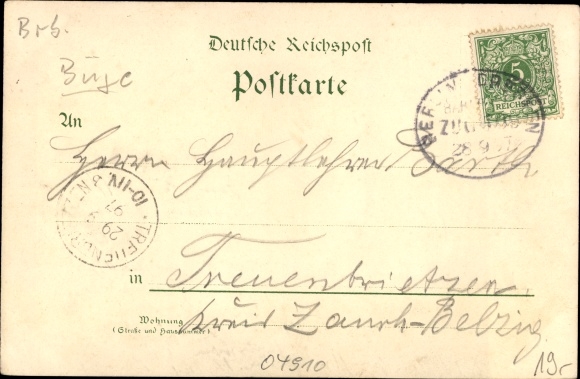 Brb.
Deutsche Reichspost
Buge
Postkarte
5
REICHSPOST
BERLIN DRESDEN
BAHNPOST
ZUG
28 9
An
Herrn Hauptlehrer
TREUENBRIETZEN
29 9 97
10-11V.
in Treuenbrietzen
Wohnung
(Straße und Hausnummer)
Kreis Zauch-Belzig
04910
19,-